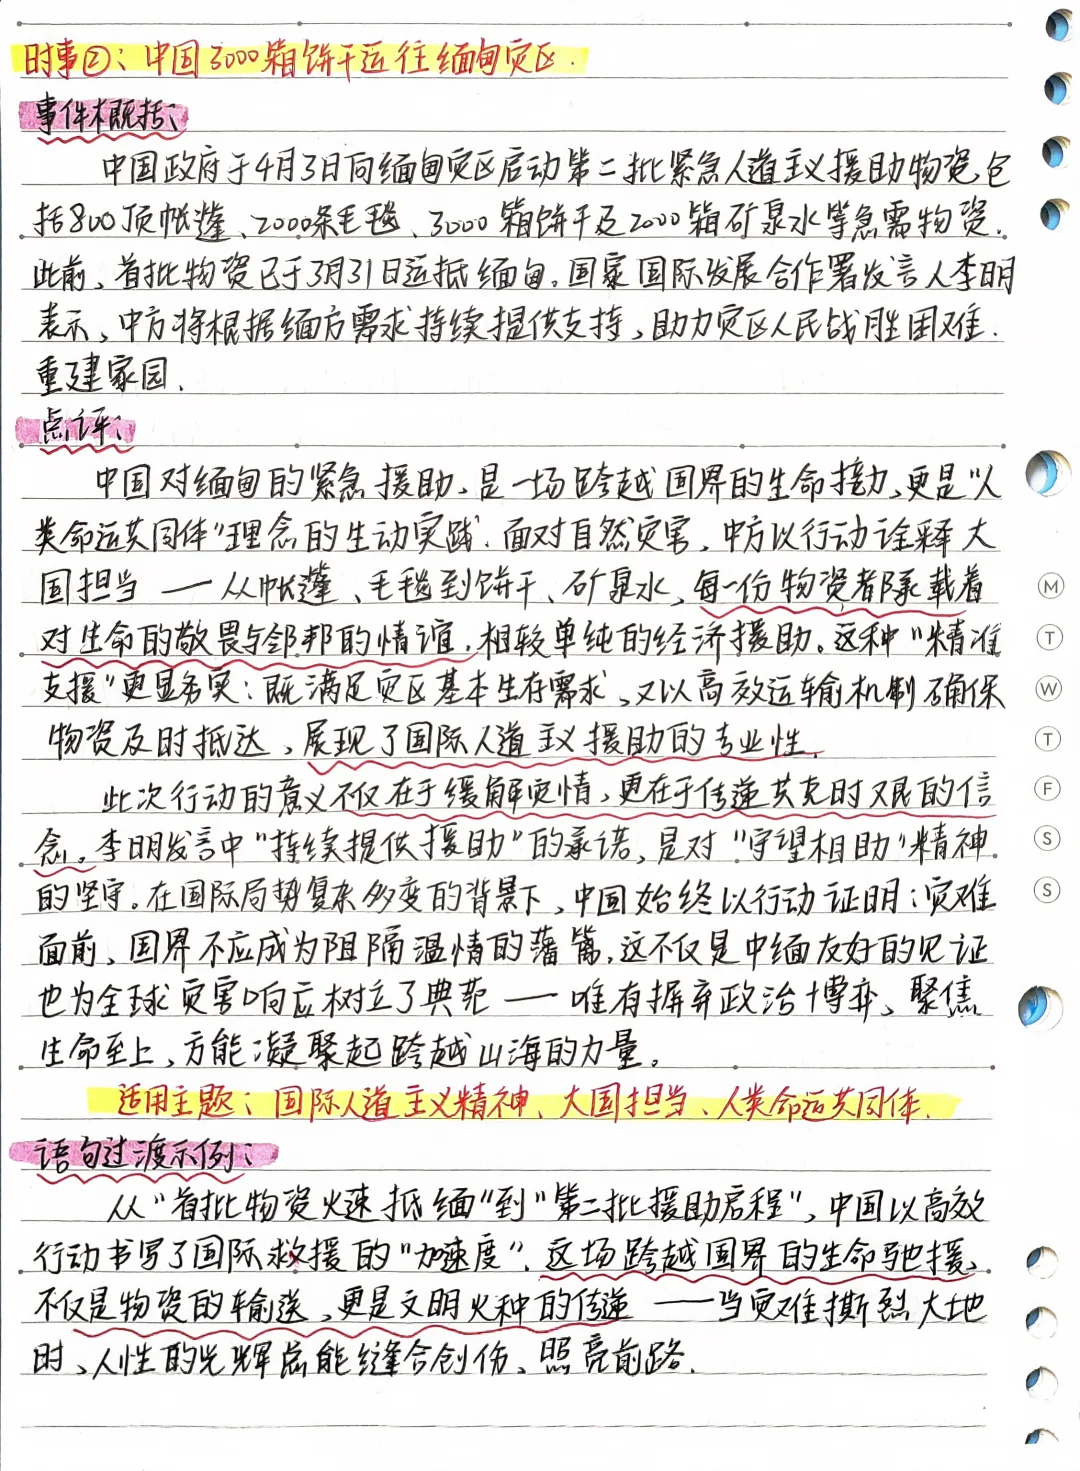 时事②：中国3000箱饼干运往缅甸灾区.
事件概括：
中国政府于4月3日向缅甸灾区启动第二批紧急人道主义援助物资,包
括800顶帐篷、2000条毛毯、3000箱饼干及2000箱矿泉水等急需物资.
此前,首批物资已于3月31日运抵缅甸。国家国际发展合作署发言人李明
表示,中方将根据缅方需求持续提供支持,助力灾区人民战胜困难.
重建家园.
点评：
中国对缅甸的紧急援助,是一场跨越国界的生命接力,更是“人
类命运共同体”理念的生动实践.面对自然灾害,中方以行动诠释大
国担当——从帐篷、毛毯到饼干、矿泉水,每一份物资都承载着
对生命的敬畏与邻邦的情谊.相较单纯的经济援助。这种“精准
支援”更显务实：既满足灾区基本生存需求,又以高效运输机制确保
物资及时抵达,展现了国际人道主义援助的专业性.
此次行动的意义不仅在于缓解灾情,更在于传递共克时艰的信
念。李明发言中“持续提供援助”的承诺,是对“守望相助”精神
的坚守。在国际局势复杂多变的背景下,中国始终以行动证明：灾难
面前,国界不应成为阻隔温情的藩篱,这不仅是中缅友好的见证
也为全球灾害响应树立了典范——唯有摒弃政治博弈、聚焦
生命至上,方能凝聚起跨越山海的力量。
适用主题：国际人道主义精神、大国担当、人类命运共同体.
语句过渡示例：
从“首批物资火速抵缅”到“第二批援助启程”,中国以高效
行动书写了国际救援的“加速度”.这场跨越国界的生命驰援,
不仅是物资的输送,更是文明火种的传递——当灾难撕裂大地
时,人性的光辉总能缝合创伤、照亮前路.
M
T
W
T
F
S
S